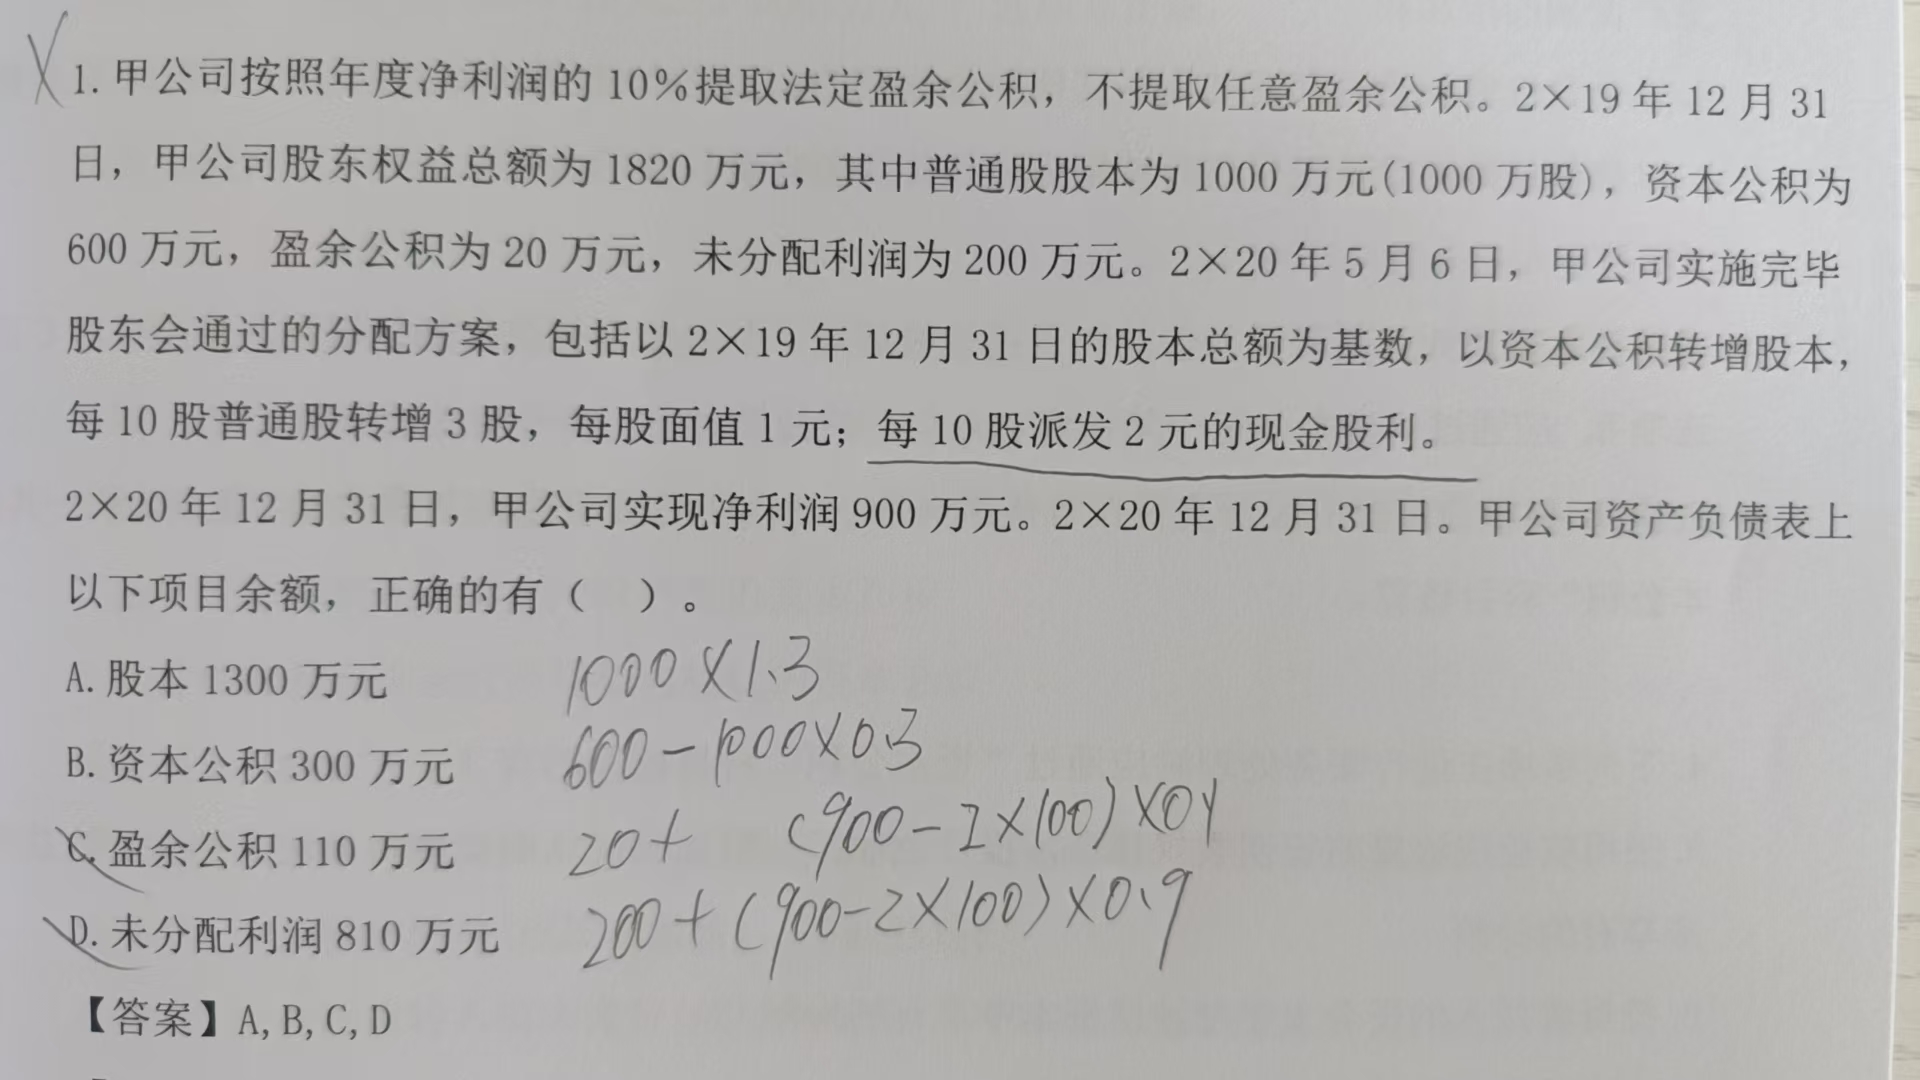 1. 甲公司按照年度净利润的 10%提取法定盈余公积，不提取任意盈余公积。2×19 年 12 月 31
日，甲公司股东权益总额为 1820 万元，其中普通股股本为 1000 万元(1000 万股)，资本公积为
600 万元，盈余公积为 20 万元，未分配利润为 200 万元。2×20 年 5 月 6 日，甲公司实施完毕
股东会通过的分配方案，包括以 2×19 年 12 月 31 日的股本总额为基数，以资本公积转增股本，
每 10 股普通股转增 3 股，每股面值 1 元；每 10 股派发 2 元的现金股利。
2×20 年 12 月 31 日，甲公司实现净利润 900 万元。2×20 年 12 月 31 日。甲公司资产负债表上
以下项目余额，正确的有（　）。
A. 股本 1300 万元 1000×1.3
B. 资本公积 300 万元 600-1000×0.3
C. 盈余公积 110 万元 20+ (900-2×100)×0.1
D. 未分配利润 810 万元 200+(900-2×100)×0.9
【答案】A, B, C, D